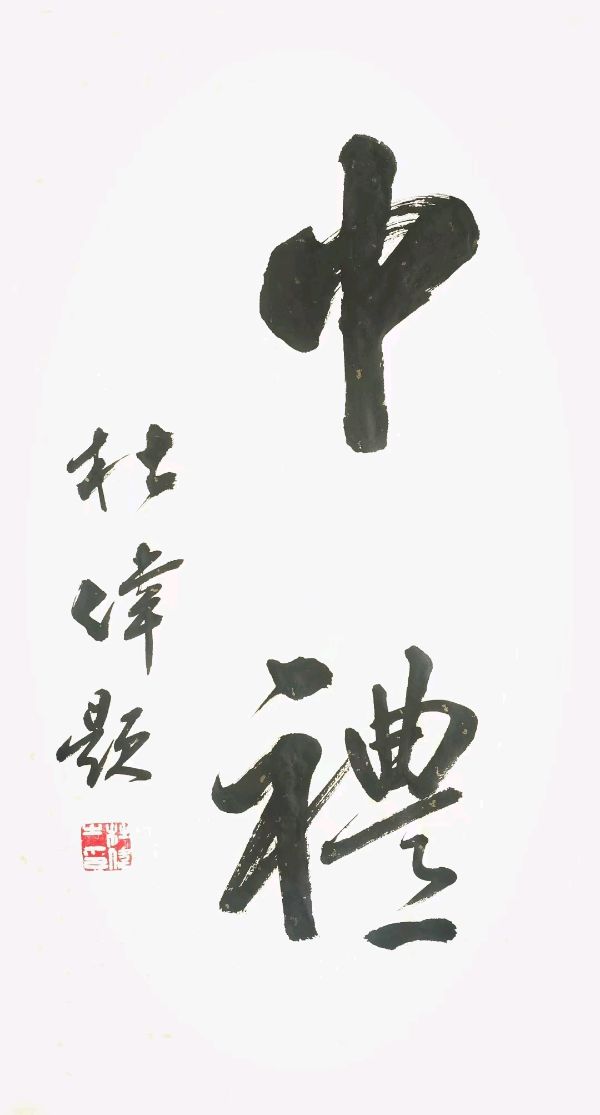 中禮
杜偉題